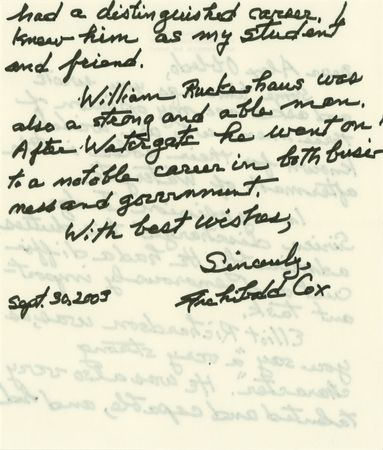 had a distinguished career. I
knew him as my student
and friend.
William Ruckeshaus was
also a strong and able man.
After Watergate he went on
to a notable career in both busi
ness and government.
With best wishes,
Sincerely,
Sept. 30, 2003 Archibald Cox